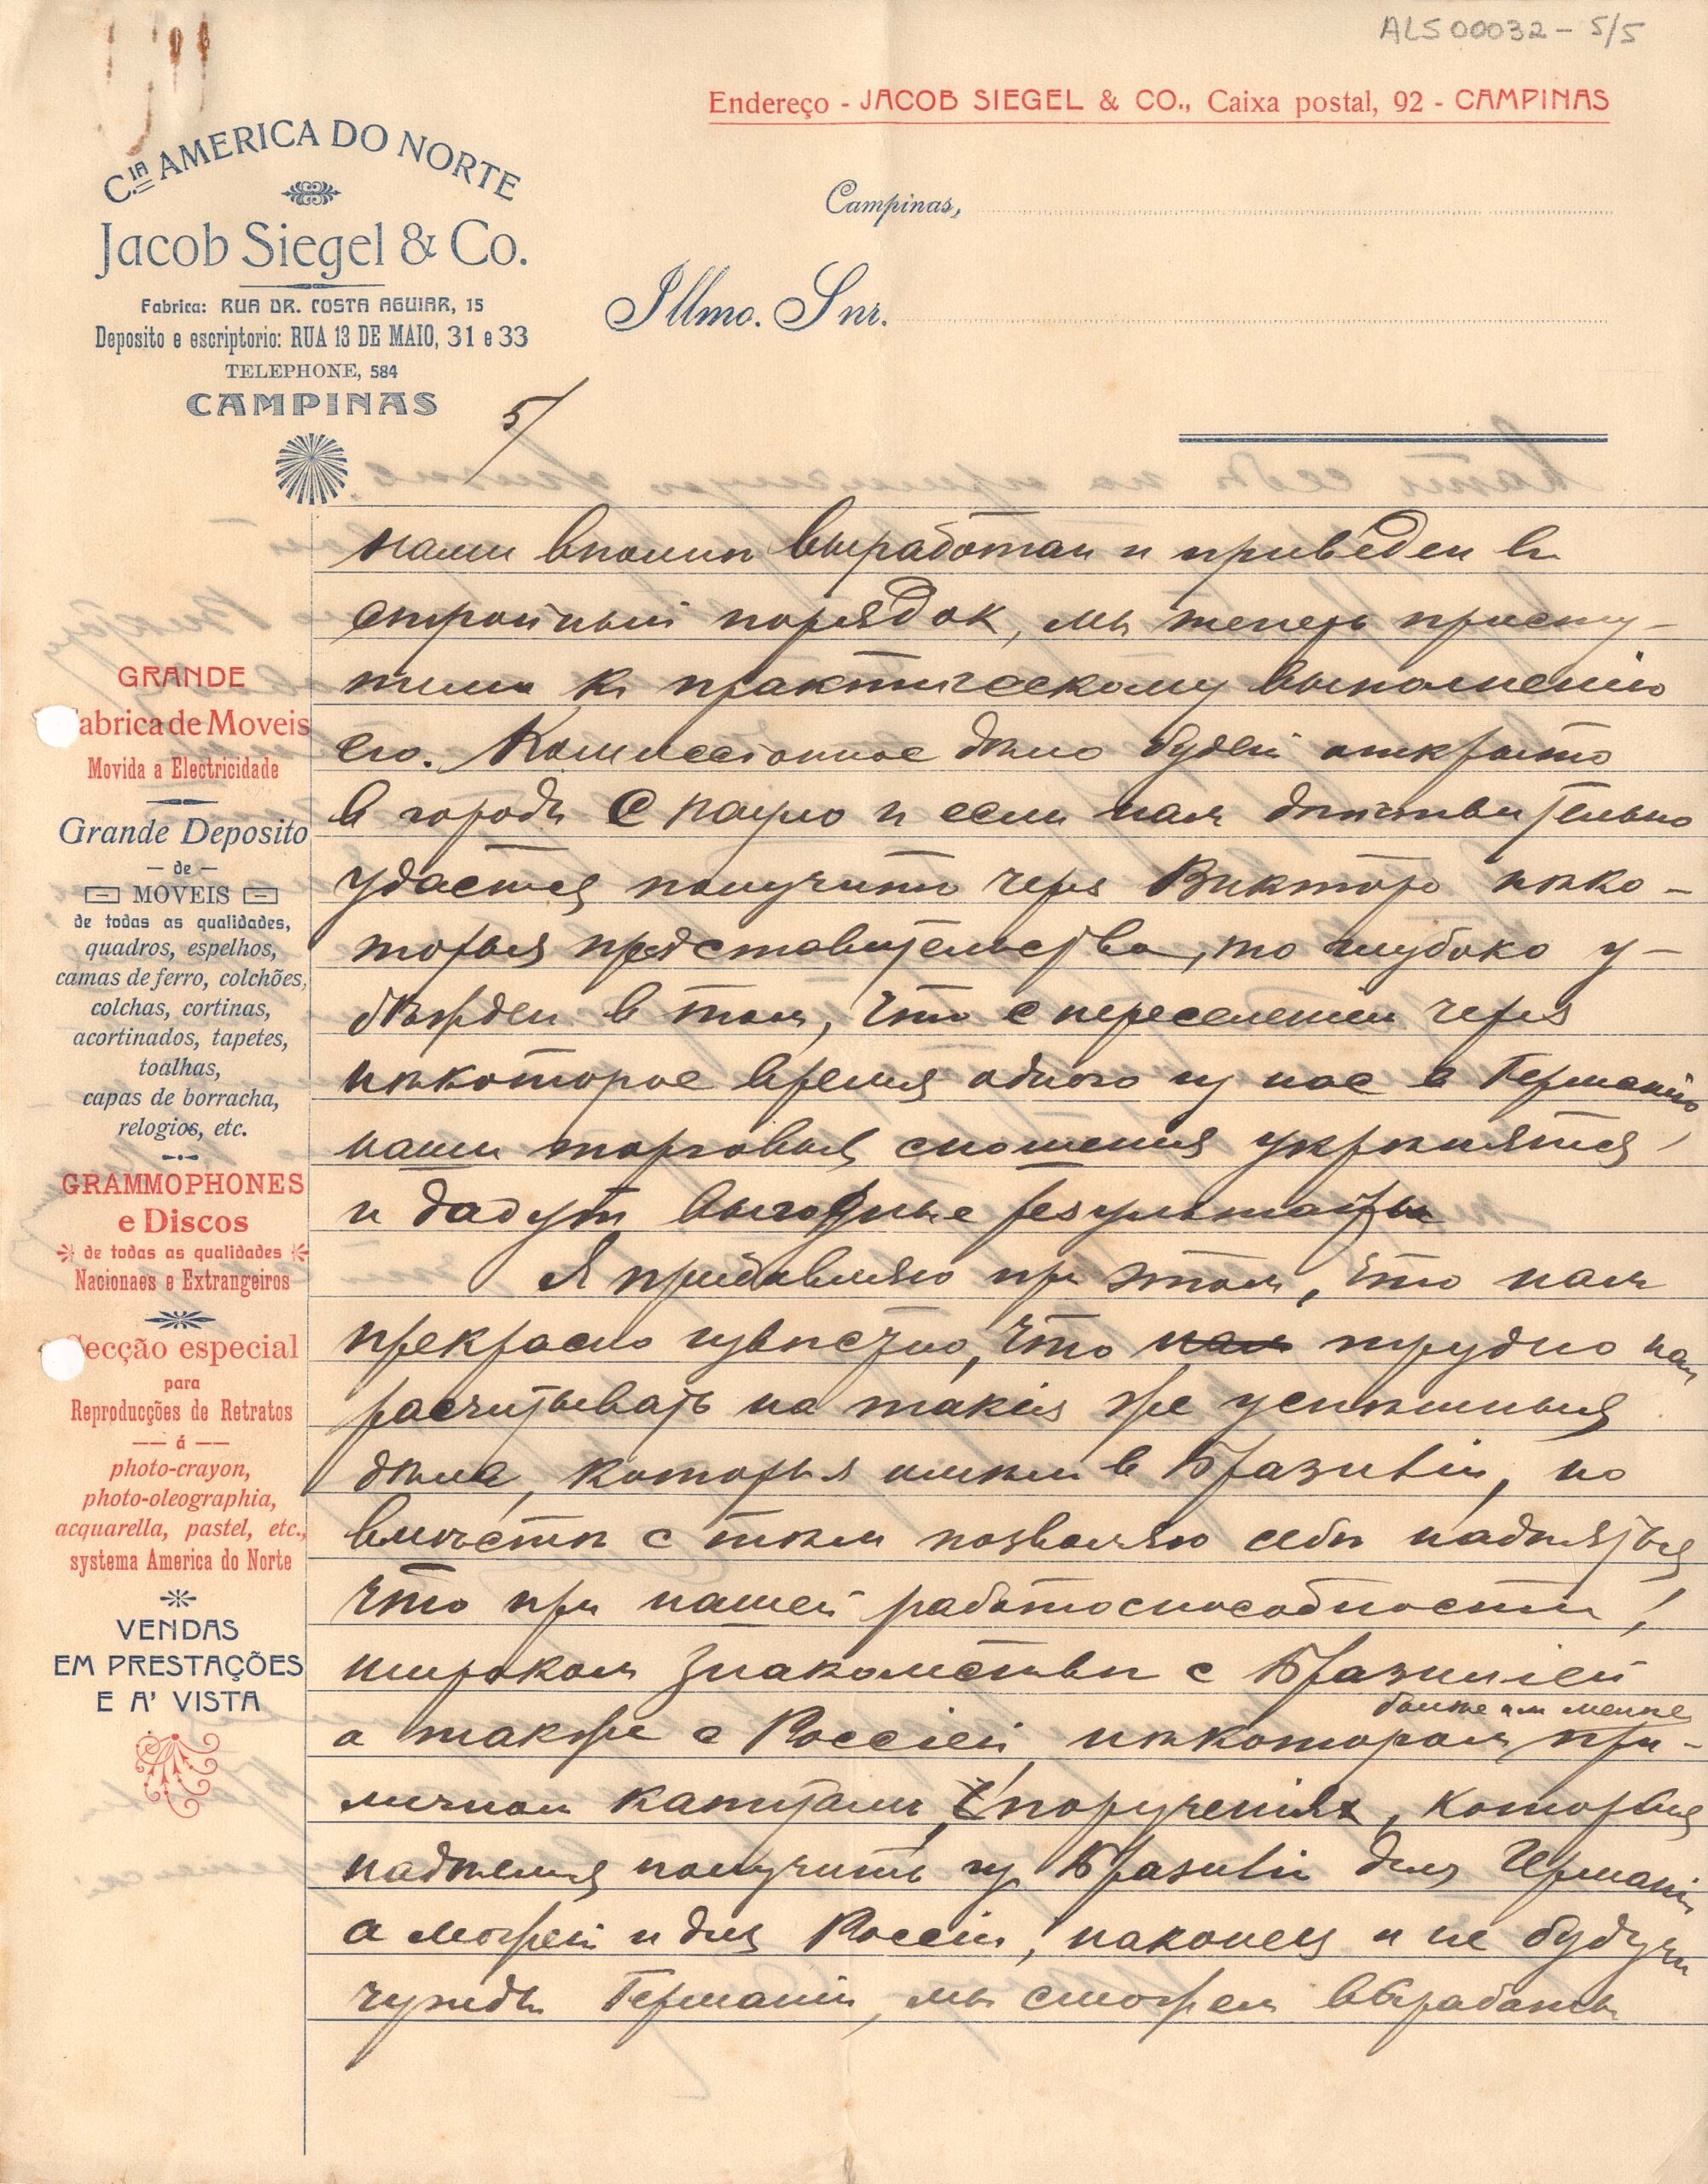 ALS 00032 - 5/5
Endereço - JACOB SIEGEL & CO., Caixa postal, 92 - CAMPINAS
C.IA AMERICA DO NORTE
Jacob Siegel & Co.
Fabrica: RUA DR. COSTA AGUIAR, 15
Deposito e escriptorio: RUA 13 DE MAIO, 31 e 33
TELEPHONE, 584
CAMPINAS
Campinas,
Illmo. Snr.
5/
GRANDE
Fabrica de Moveis
Movida a Electricidade
Grande Deposito
— de —
MOVEIS
de todas as qualidades,
quadros, espelhos,
camas de ferro, colchões,
colchas, cortinas,
acortinados, tapetes,
toalhas,
capas de borracha,
relogios, etc.
GRAMMOPHONES
e Discos
de todas as qualidades
Nacionaes e Extrangeiros
Secção especial
para
Reproducções de Retratos
— á —
photo-crayon,
photo-oleographia,
acquarella, pastel, etc.,
systema America do Norte
VENDAS
EM PRESTAÇÕES
E A' VISTA
нами вполнѣ выработан и приведен въ
стройный порядок, мы теперь присту-
пили къ практическому выполненію
его. Коммиссіонное дѣло будет открыто
в городѣ С Пауло и если нам дѣйствительно
удастся получить через Виктора нѣко-
торыя представительства, то глубоко у-
бѣжден в том, что с переселеніем через
нѣкоторое время одного из нас в Германію
наши торговыя сношения укрѣпятся
и дадут выгодные результаты
Я прибавляю при этом, что нам
прекрасно извѣстно, что трудно нам
расчитывать на такія же успѣшныя
дѣла, которыя имѣли в Бразиліи, но
вмѣстѣ с тѣм позволяю себѣ надѣяться
что при нашей работоспособности,
широком знакомствѣ с Бразиліей
а также с Россіей, нѣкотором болѣе или менѣе при-
личном капиталѣ, порученіях, которыя
надѣемся получить из Бразиліи для Германіи
а может и для Россіи, наконец и не будучи
чужды Германіи, мы сможем выработать